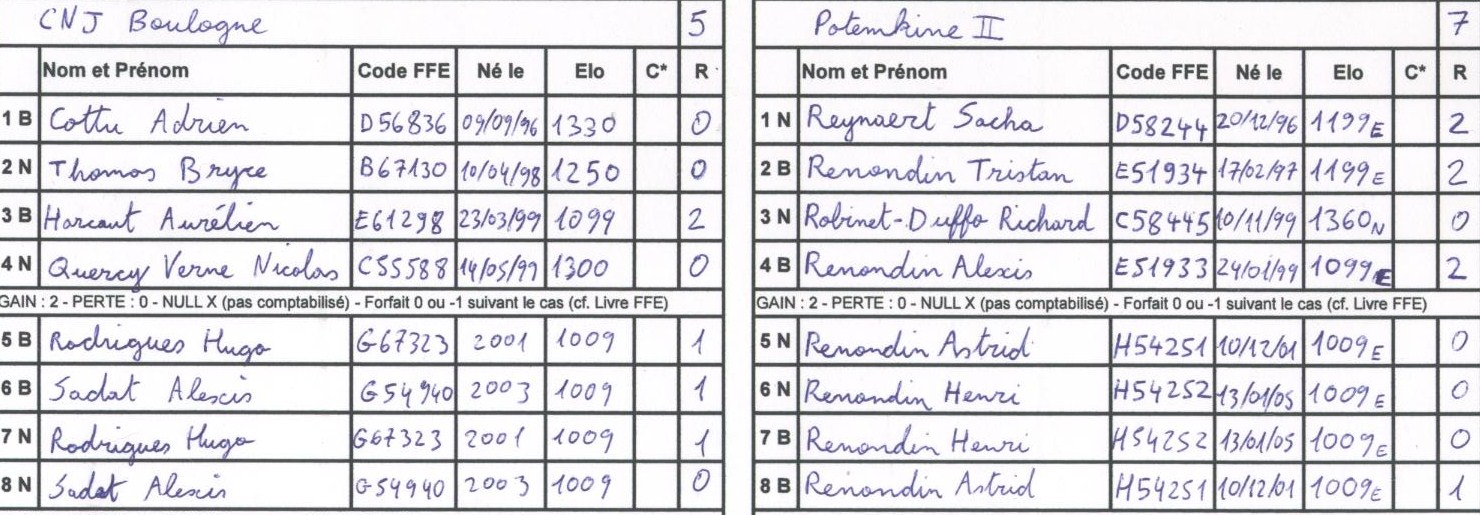 CNJ Boulogne 5 Potemkine II 7
Nom et Prénom Code FFE Né le Elo C* R Nom et Prénom Code FFE Né le Elo C* R
1 B Cottu Adrien D56836 09/09/96 1330 0 1 N Reynaert Sacha D58244 20/12/96 1199E 2
2 N Thomas Bryce B67130 10/04/98 1250 0 2 B Renondin Tristan E51934 17/02/97 1199E 2
3 B Harcaut Aurélien E61298 23/03/99 1099 2 3 N Robinet-Duffo Richard C58445 10/11/99 1360N 0
4 N Quercy Verne Nicolas C55588 14/05/99 1300 0 4 B Renondin Alexis E51933 24/01/99 1099E 2
GAIN : 2 - PERTE : 0 - NULL X (pas comptabilisé) - Forfait 0 ou -1 suivant le cas (cf. Livre FFE) GAIN : 2 - PERTE : 0 - NULL X (pas comptabilisé) - Forfait 0 ou -1 suivant le cas (cf. Livre FFE)
5 B Rodrigues Hugo G67323 2001 1009 1 5 N Renondin Astrid H54251 10/12/01 1009E 0
6 B Sadat Alexis G54940 2003 1009 1 6 N Renondin Henri H54252 13/01/05 1009E 0
7 N Rodrigues Hugo G67323 2001 1009 1 7 B Renondin Henri H54252 13/01/05 1009E 0
8 N Sadat Alexis G54940 2003 1009 0 8 B Renondin Astrid H54251 10/12/01 1009E 1